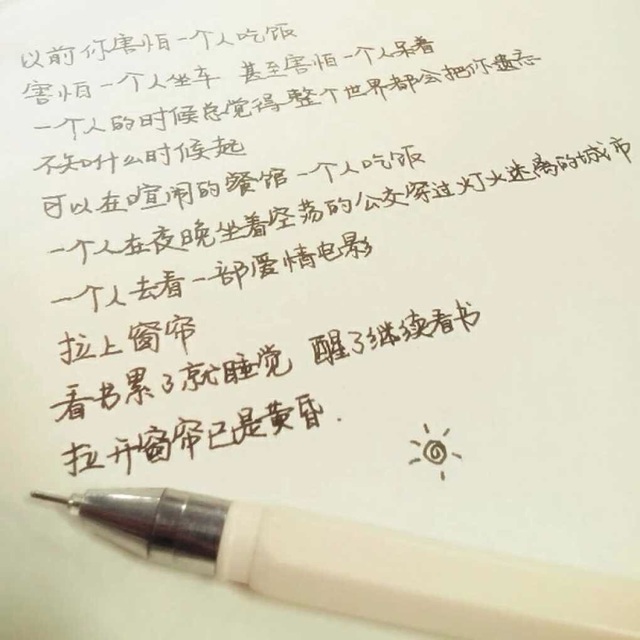 以前你害怕一个人吃饭
害怕一个人坐车 甚至害怕一个人呆着
一个人的时候总觉得整个世界都会把你遗忘
不知什么时候起
可以在喧闹的餐馆一个人吃饭
一个人在夜晚坐着空荡的公交穿过灯火迷离的城市
一个人去看一部爱情电影
拉上窗帘
看书累了就睡觉 醒了继续看书
拉开窗帘已是黄昏.